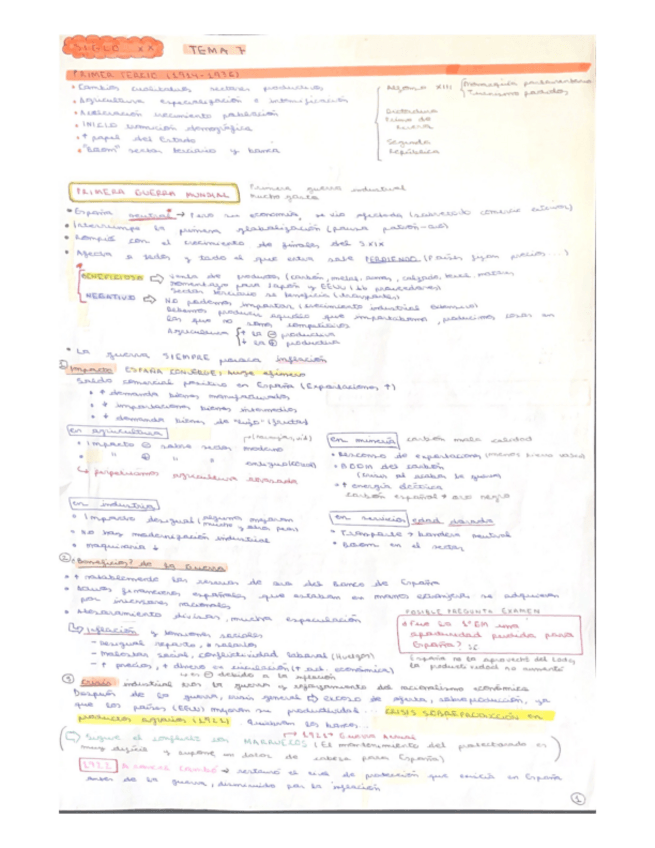 SIGLO XX TEMA 7
PRIMER TERCIO (1914-1936)
• Cambios cualitativos sectores productivos
• Agricultura especialización e intensificación
• Aceleración crecimiento población
• INICIO transición demográfica
• ↑ papel del Estado
• "Boom" sector terciario y banca
Alfonso XIII Monarquía parlamentaria
Turnismo partidos
Dictadura
Primo de
Rivera
Segunda
República
PRIMERA GUERRA MUNDIAL
Primera guerra industrial
mucho gasto
• España neutral → Pero su economía, se vio afectada (sobre todo comercio exterior)
• Interrumpe la primera globalización (pausa patrón-oro)
• Rompió con el crecimiento de finales del S.XIX
• Afecta a todos y todo el que entra sale PERDIENDO (Países fijan precios...)
BENEFICIOSO ⇨ venta de productos (carbón, metal, armas, calzado,
Japón y EEUU (sus proveedores)
Sector terciario se beneficia (transportes)
NEGATIVO ⇨ No podemos importar (crecimiento industrial
Debemos producir aquello que importábamos, producimos cosas en
las que no somos competitivos
Agricultura ↑ la ⊖ productiva
↓ la ⊕ productiva
• La guerra SIEMPRE provoca inflación
① Impacto ESPAÑA CONVERGE, auge efímero
Saldo comercial positivo en España (Exportaciones ↑)
• ↑ demanda bienes manufacturados
• ↓ importaciones bienes intermedios
• ↓ demanda bienes de "lujo" (frutas)
en agricultura
• Impacto ⊖ sobre sector moderno
• " ⊕ " "
↳ perpetuamos agricultura atrasada
en minería carbón mala calidad
• Descenso de exportaciones
• BOOM del carbón
(Crisis al acabar la guerra
• ↑ energía eléctrica
carbón español = oro negro
en industria
• Impacto desigual (algunos mejoran
mucho y otros peor
• No hay modernización industrial
• maquinaria ↓
en servicios edad dorada
• Transporte → bandera neutral
• Boom en el sector
② ¿Beneficios? de la Guerra
• ↑ notablemente las reservas de oro del Banco de España
• Activos financieros españoles, que estaban en manos extranjeras, se adquieren
por inversores nacionales
• Abaratamiento divisas, mucha especulación
↳ Inflación y tensiones sociales
- Desigual reparto, ↓ salarios
- Malestar social, conflictividad laboral (Huelgas)
- ↑ precios, ↑ dinero en circulación (↑ act. económica)
debido a la inflación
POSIBLE PREGUNTA EXAMEN
¿Fue la 1ªGM una
oportunidad perdida para
España? SÍ
(España no la aprovechó del todo,
la productividad no aumentó
③ Crisis industrial tras la guerra y reforzamiento del nacionalismo económico
Después de la guerra, crisis general ⇨ exceso de oferta, sobreproducción, ya
que los países (EEUU) mejoran su productividad... CRISIS SOBREPRODUCCIÓN en
productos agrarios (1921). Quiebran los bancos...
(↳ Sigue el conflicto con MARRUECOS → 1921 Guerra Annual (El mantenimiento del protectorado es
muy difícil y supone un dolor de cabeza para España)
1922 Arancel Cambó → restauró el nivel de protección que existía en España
antes de la guerra, disminuido por la inflación
1